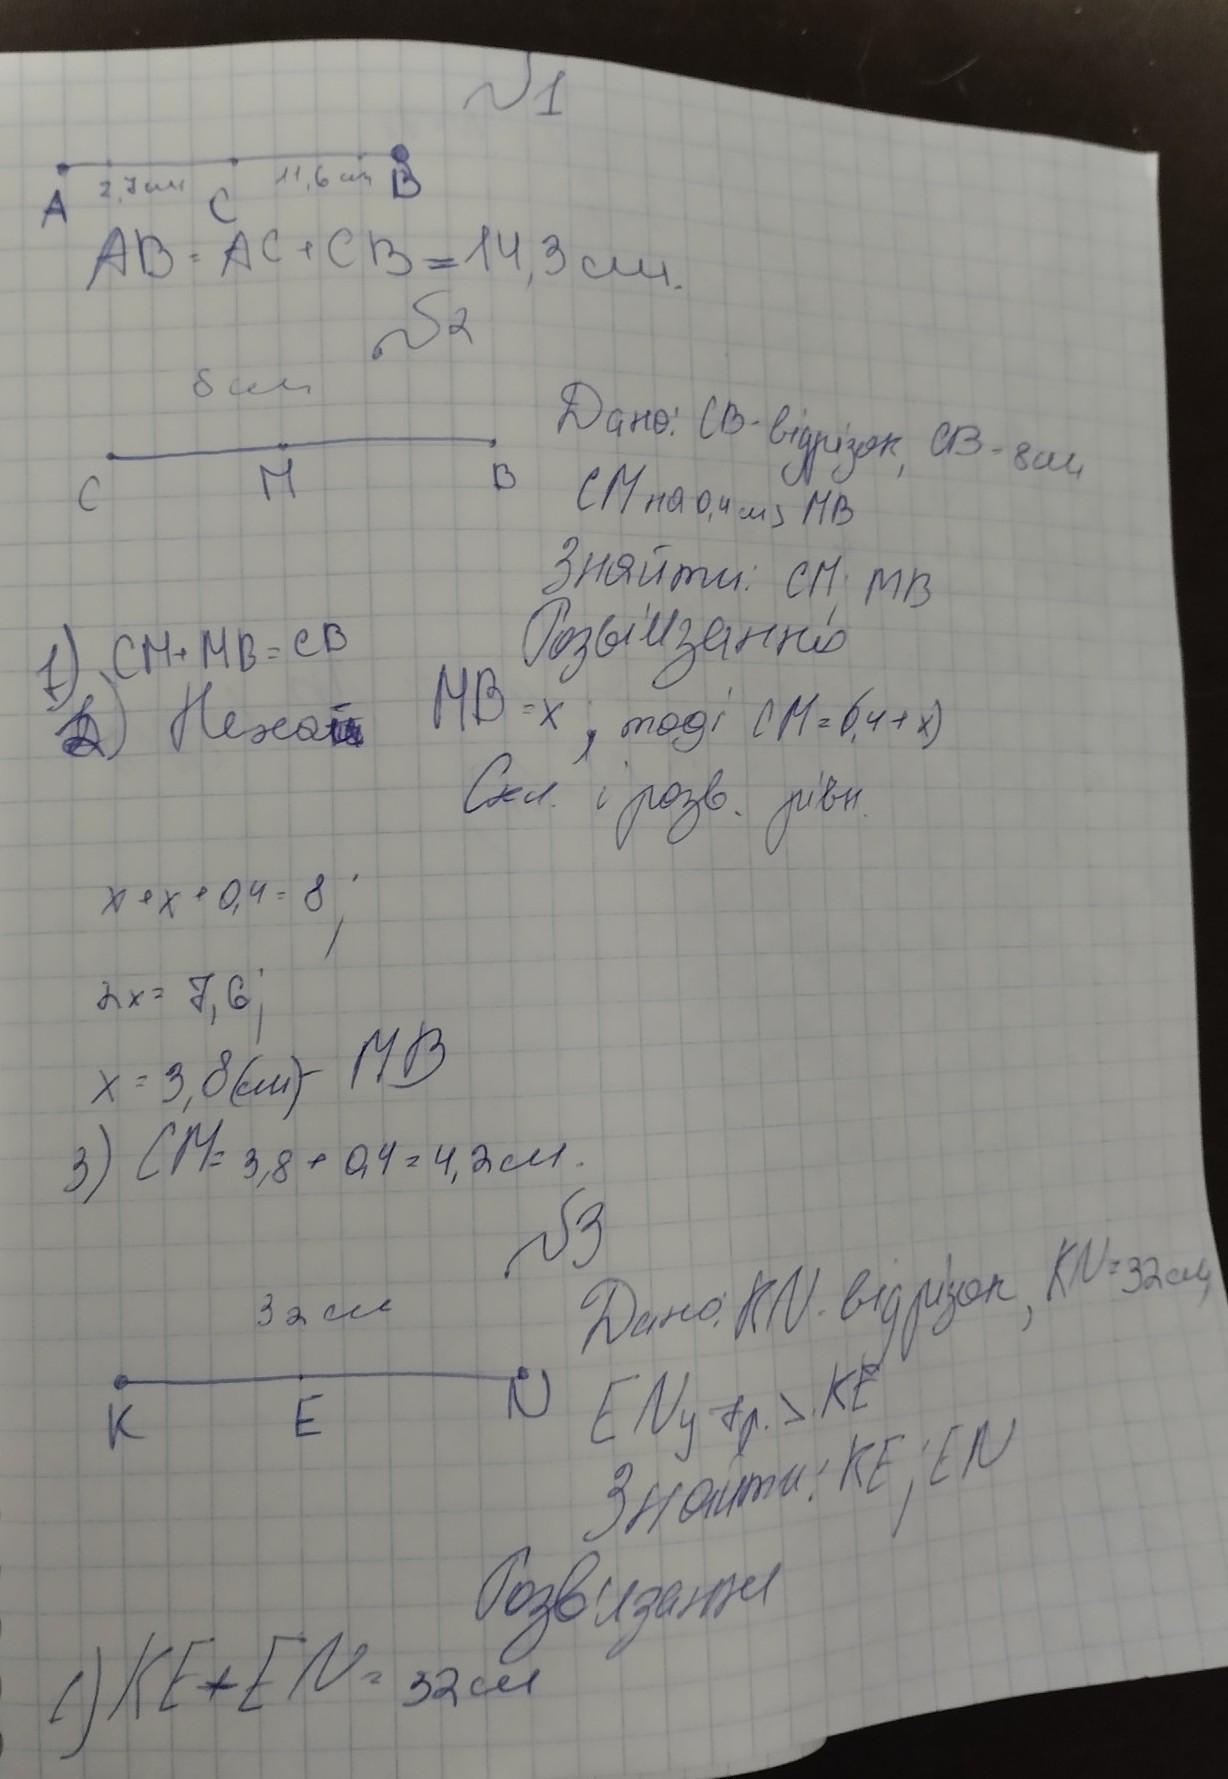 №1
2,7 см 11,6 см
A C B
AB = AC + CB = 14,3 см.
№2
8 см
C M B
Дано: CB - відрізок, CB - 8 см
CM на 0,4 см > MB
Знайти: CM; MB
Розв'язання
1) CM + MB = CB
2) Нехай MB = x, тоді CM = 0,4 + x)
Скл. і розв. рівн.
x + x + 0,4 = 8;
2x = 7,6;
x = 3,8 (см) - MB
3) CM = 3,8 + 0,4 = 4,2 см.
№3
32 см
K E N
Дано: KN - відрізок, KN = 32 см,
EN у р. > KE
Знайти: KE; EN
Розв'язання
1) KE + EN = 32 см